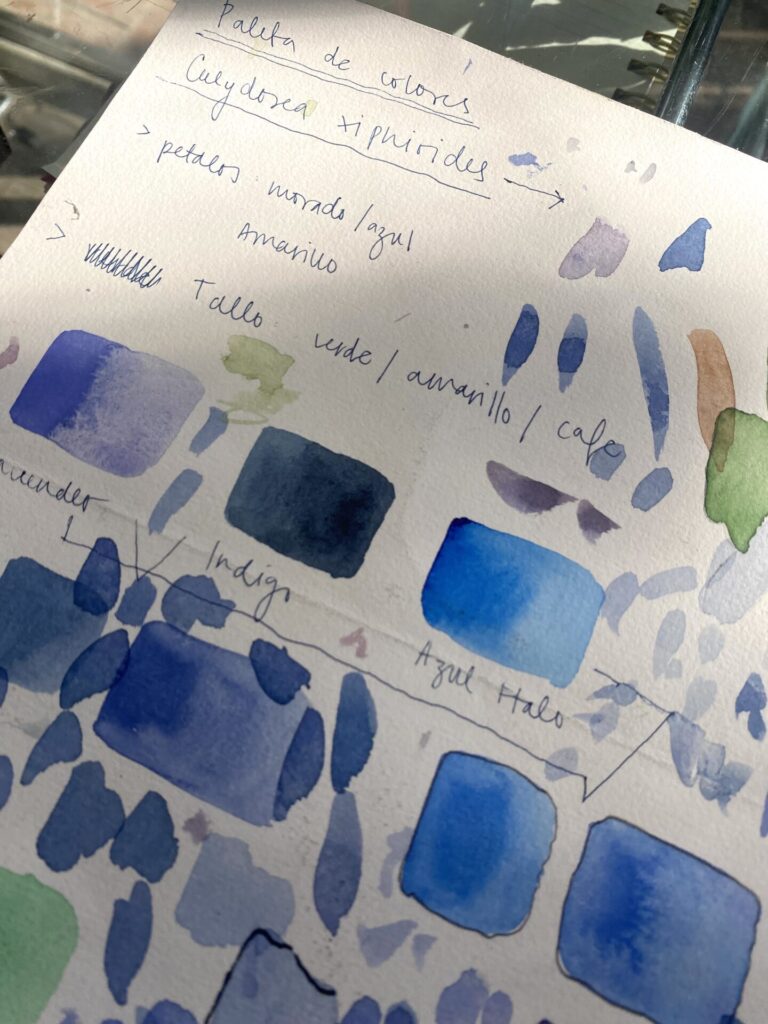 Paleta de colores
Calydorea xiphioides
> petalos : morado/azul
Amarillo
> Tallo : verde / amarillo / cafe
Indigo
Azul Halo